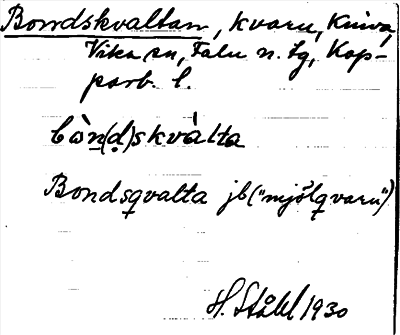 Bondskvaltan, kvarn, Kniva,
Vika sn, Falu n. tg, Kop-
parb. l.
bòn(d)skválta
Bondsqvalta jb ("mjölqvarn")
H. Ståhl 1930